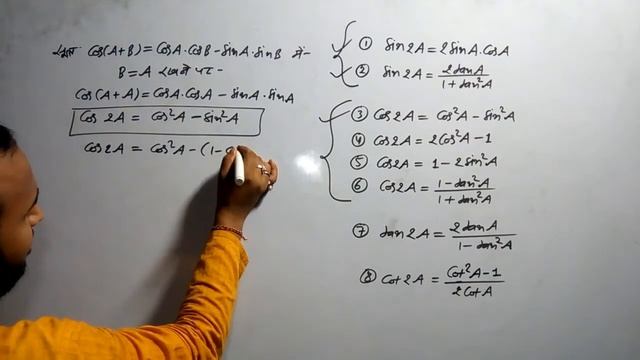 cos(A+B) = cosA·cosB - sinA·sinB में-
B = A रखने पर-
cos(A+A) = cosA·cosA - sinA·sinA
cos 2A = cos²A - sin²A
cos2A = cos²A - (1-c
① sin2A = 2sinA·cosA
② sin2A = 2tanA / 1+tan²A
③ cos2A = cos²A - sin²A
④ cos2A = 2cos²A - 1
⑤ cos2A = 1 - 2sin²A
⑥ cos2A = 1-tan²A / 1+tan²A
⑦ tan2A = 2tanA / 1-tan²A
⑧ cot2A = cot²A-1 / 2cotA